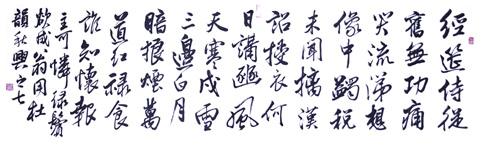 經筵侍從
舊無功痛
哭流涕想
像中蠲税
未聞摛漢
詔
衣何
日講豳風
天寒戍雪
三邊白月
暗狼煙萬
道紅祿食
誰知懷報
主可憐緑鬢
欻成翁用杜
韻秋興之七